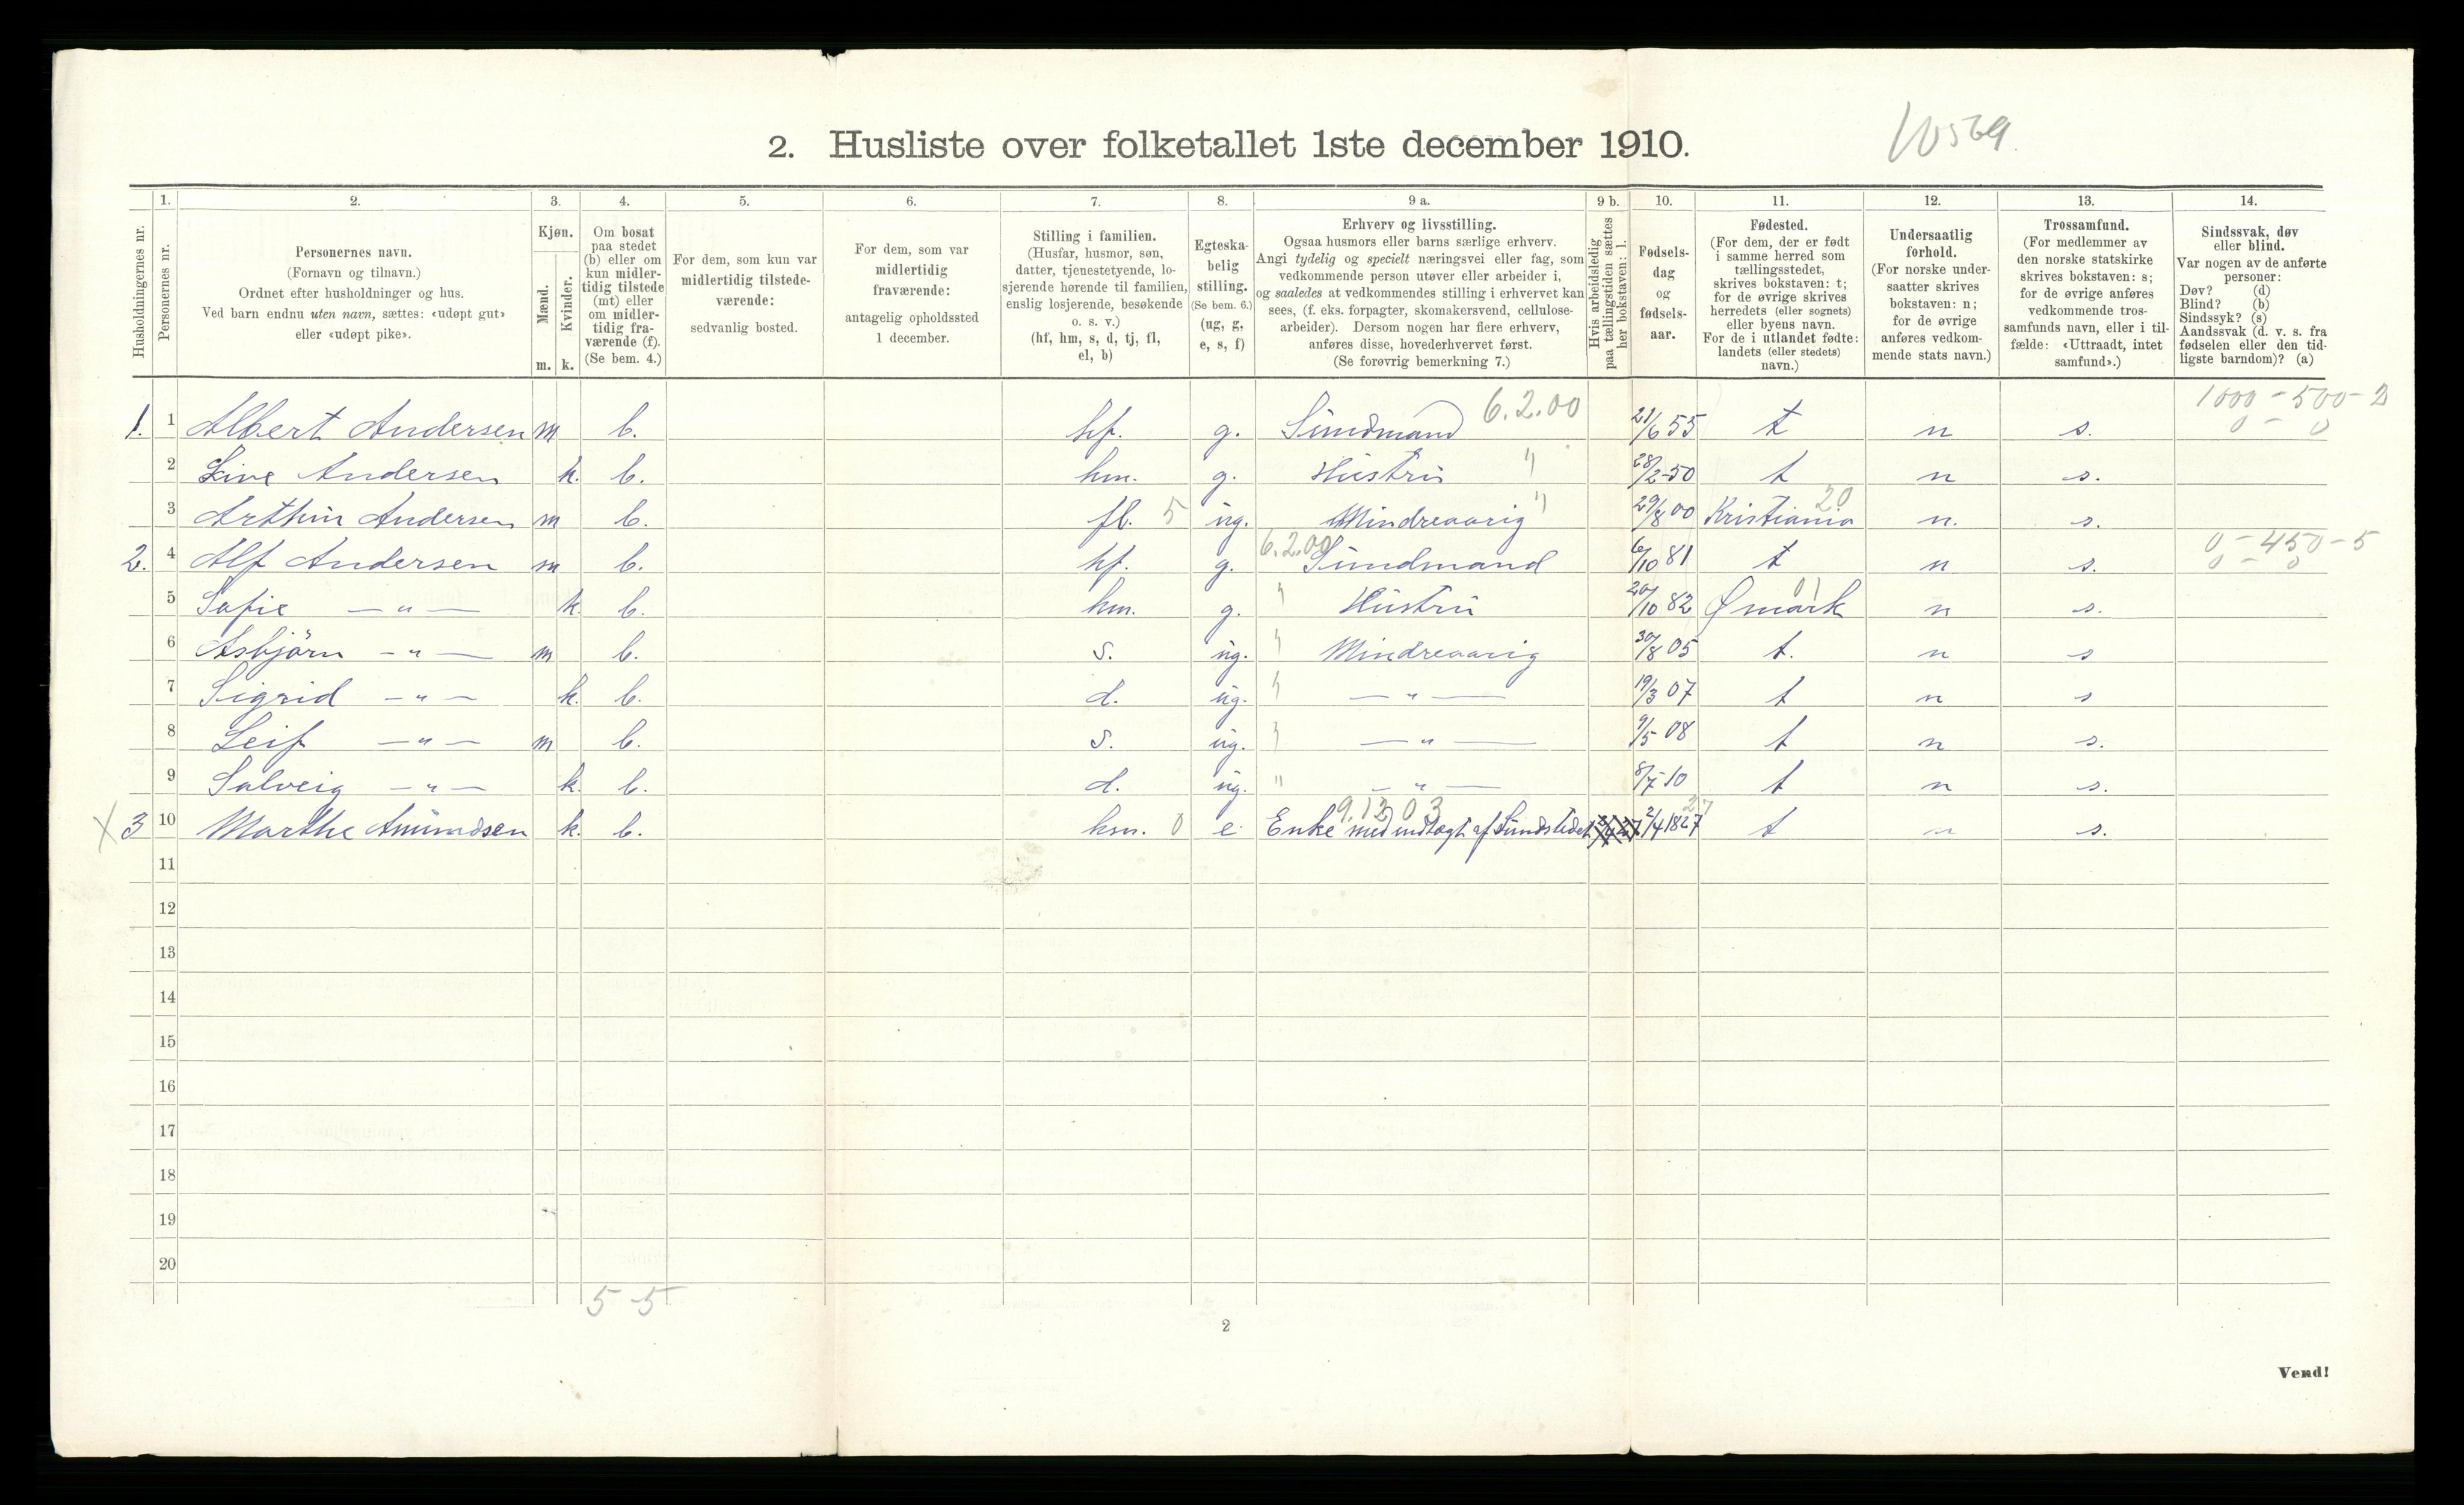 2. Husliste over folketallet 1ste december 1910.
10569
Husholdningernes nr.
1. Personernes nr.
2. Personernes navn.
(Fornavn og tilnavn.)
Ordnet efter husholdninger og hus.
Ved barn endnu uten navn, sættes: «udøpt gut»
eller «udøpt pike».
3. Kjøn.
Mænd. Kvinder.
m. k.
4. Om bosat
paa stedet
(b) eller om
kun midler-
tidig tilstede
(mt) eller
om midler-
tidig fra-
værende (f).
(Se bem. 4.)
5. For dem, som kun var
midlertidig tilstede-
værende:
sedvanlig bosted.
6. For dem, som var
midlertidig
fraværende:
antagelig opholdssted
1 december.
7. Stilling i familien.
(Husfar, husmor, søn,
datter, tjenestetyende, lo-
sjerende hørende til familien,
enslig losjerende, besøkende
o. s. v.)
(hf, hm, s, d, tj, fl,
el, b)
8. Egteska-
belig
stilling.
(Se bem. 6.)
(ug, g,
e, s, f)
9 a. Erhverv og livsstilling.
Ogsaa husmors eller barns særlige erhverv.
Angi tydelig og specielt næringsvei eller fag, som
vedkommende person utøver eller arbeider i,
og saaledes at vedkommendes stilling i erhvervet kan
sees, (f. eks. forpagter, skomakersvend, cellulose-
arbeider). Dersom nogen har flere erhverv,
anføres disse, hovederhvervet først.
(Se forøvrig bemerkning 7.)
9 b. Hvis arbeidsledig
paa tællingstiden sættes
her bokstaven: l.
10. Fødsels-
dag
og
fødsels-
aar.
11. Fødested.
(For dem, der er født
i samme herred som
tællingsstedet,
skrives bokstaven: t;
for de øvrige skrives
herredets (eller sognets)
eller byens navn.
For de i utlandet fødte:
landets (eller stedets)
navn.)
12. Undersaatlig
forhold.
(For norske under-
saatter skrives
bokstaven: n;
for de øvrige
anføres vedkom-
mende stats navn.)
13. Trossamfund.
(For medlemmer av
den norske statskirke
skrives bokstaven: s;
for de øvrige anføres
vedkommende tros-
samfunds navn, eller i til-
fælde: «Uttraadt, intet
samfund».)
14. Sindssvak, døv
eller blind.
Var nogen av de anførte
personer:
Døv? (d)
Blind? (b)
Sindssyk? (s)
Aandssvak (d. v. s. fra
fødselen eller den tid-
ligste barndom)? (a)
1. 1 Albert Andersen m b. hf. g. Sundmand 6.2.00 21/6 55 t n s. 1000 - 500 - 2 0 - 0
2 Live Andersen k. b. hm. g. Hustru " 28/2-50 t n s.
3 Arthur Andersen m b. fl. 5 ug. Mindreaarig " 29/8 00 Kristiania 20 n. s.
2. 4 Alf Andersen m b. hf. g. 6.2.00 Sundmand 6/10 81 t n s. 0 - 450 - 5 0 - 0
5 Sofie — " — k. b. hm. g. " Hustru 20/10 82 Ømark 01 n s.
6 Asbjörn — " — m b. s. ug. " Mindreaarig 30/8 05 t. n s
7 Sigrid — " — k. b. d. ug. " — " — 19/3 07 t n s
8 Leif — " — m b. s. ug. " — " — 9/5 08 t n s.
9 Solveig — " — k. b. d. ug. " — " — 8/7-10 t n s.
X 3 10 Marthe Amundsen k. b. hm. 0 e. Enke med undtægt af Sundstedet 9.12 03 2/4 1827 27 t n s.
11
12
13
14
15
16
17
18
19
20
5-5
2
Vend!